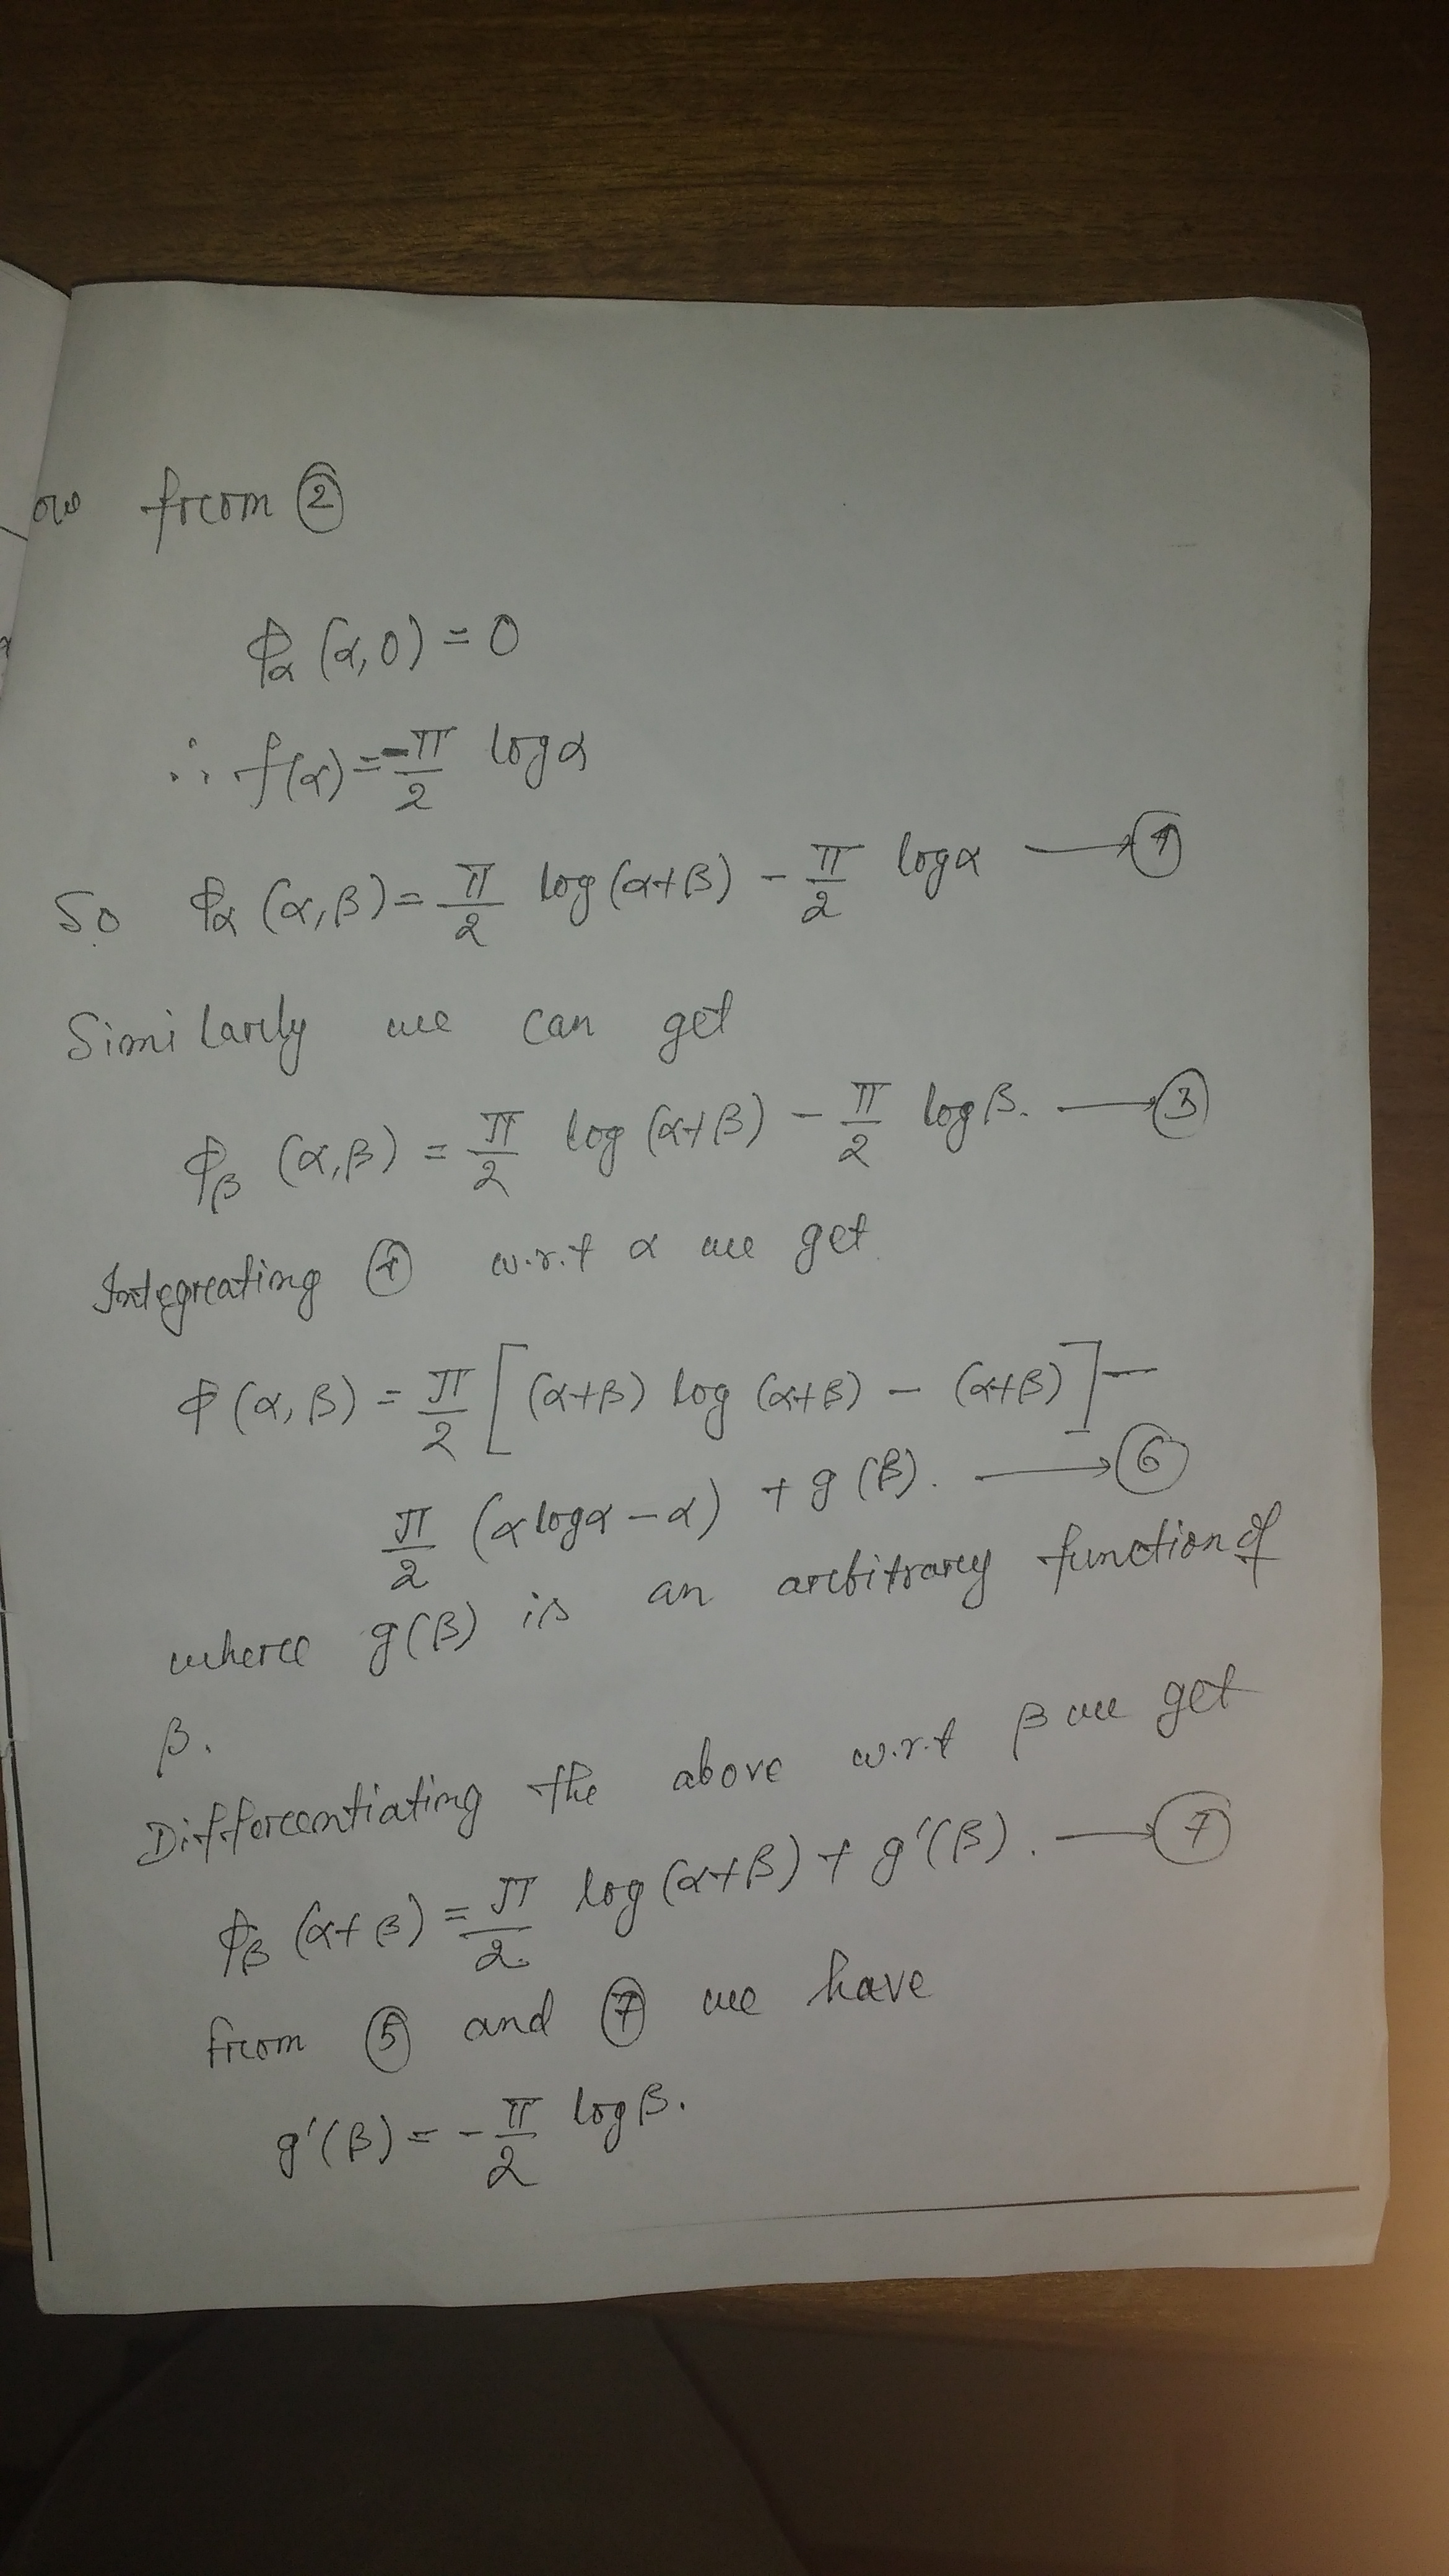 ow from ②
ϕα (α,0) = 0
∴ f(α) = -π/2 log α
So ϕα (α,β) = π/2 log (α+β) - π/2 log α ⟶ ④
Similarly we can get
ϕβ (α,β) = π/2 log (α+β) - π/2 log β. ⟶ ⑤
Integreating ④ w.r.t α we get
ϕ (α,β) = π/2 [(α+β) log (α+β) - (α+β)] -
π/2 (α log α - α) + g (β). ⟶ ⑥
where g(β) is an arbitrary function of
β.
Differentiating the above w.r.t β we get
ϕβ (α+β) = π/2 log (α+β) + g'(β). ⟶ ⑦
from ⑤ and ⑦ we have
g'(β) = - π/2 log β.